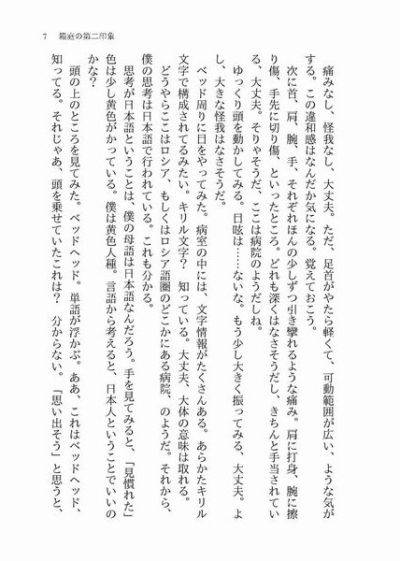 7　箱庭の第二印象
　痛みなし、怪我なし、大丈夫。ただ、足首がやたら軽くて、可動範囲が広い、ような気が
する。この違和感はなんだか気になる。覚えておこう。
　次に首、肩、腕、手、それぞれほんの少しずつ引き攣れるような痛み。肩に打身、腕に擦
り傷、手先に切り傷、といったところ。どれも深くはなさそうだし、きちんと手当されてい
る、大丈夫。そりゃそうだ、ここは病院のようだしね。
　ゆっくり頭を動かしてみる。目眩は……ないな。もう少し大きく振ってみる、大丈夫。よ
し、大きな怪我はなさそうだ。
　ベッド周りに目をやってみた。病室の中には、文字情報がたくさんある。あらかたキリル
文字で構成されてるみたい。キリル文字？　知っている。大丈夫、大体の意味は取れる。
　どうやらここはロシア、もしくはロシア語圏のどこかにある病院、のようだ。それから、
僕の思考は日本語で行われている。これも分かる。
　思考が日本語ということは、僕の母語は日本語なんだろう。手を見てみると、「見慣れた」
色は少し黄色がかっている。僕は黄色人種。言語から考えると、日本人ということでいいの
かな？
　頭の上のところを見てみた。ベッドヘッド。単語が浮かぶ。ああ、これはベッドヘッド、
知ってる。それじゃあ、頭を乗せていたこれは？　分からない。「思い出そう」と思うと、